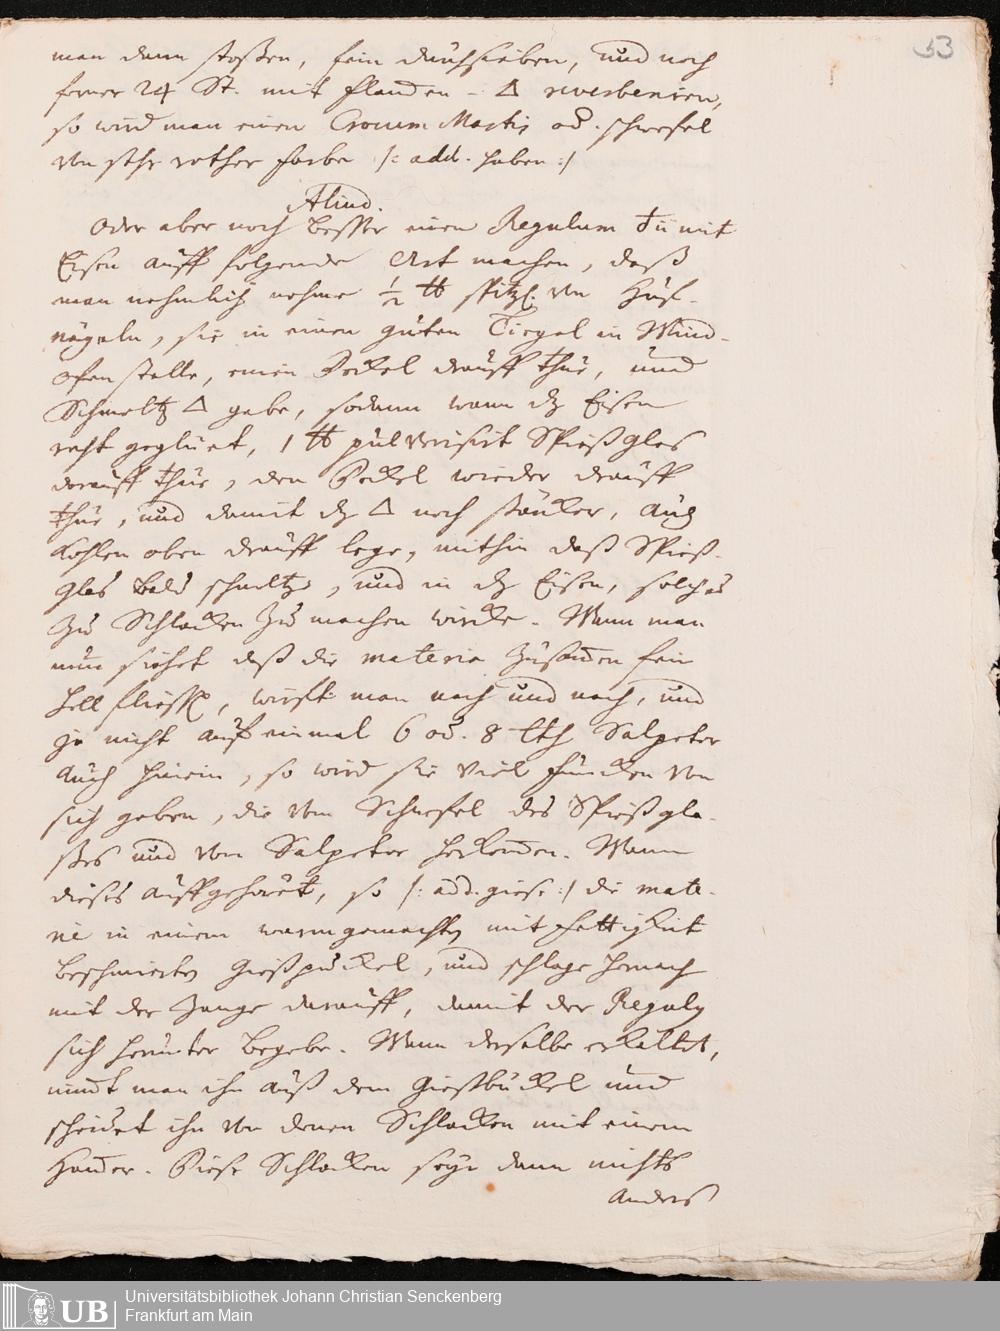 53
man dann stoßen, fein durchsieben, und noch
ferner 24 St. mit flamen - △ reverberiren,
so wird man einen Crocum Martis od. schwefel
von sehr rother farbe /: add. haben :/
Aliud.
Oder aber noch besser einen Regulum ♁ii mit
Eisen auff folgende Art machen, daß
man nehmlich nehme ½ ℔ spitzl. von Huf-
nägeln, sie in einen guten Tiegel in Wind-
ofen stelle, einen Deckel drauff thue, und
Schmeltz △ gebe, sodann wann dz Eisen
recht geglüet, 1 ℔ pulverisirt Spießglas
darauff thue, den Deckel wieder drauff
thue, und damit dz △ noch stärker, auch
Kohlen oben drauff lege, mithin daß Spieß-
glas bald schmeltze, und in dz Eisen, solches
zu Schlacken zu machen wircke. Wann man
nun siehet daß die materia zusamen fein
hell fliesse, wirft man nach und nach, und
ja nicht auf einmal 6 od. 8 lth Salpeter
auch hinein, so wird sie viel funcken von
sich geben, die vom Schwefel des Spießgla-
ses und vom Salpeter herkomen. Wann
dieses auffgehöret, so /: add. giese :/ die mate-
rie in einem warmgemachten mit fettigkeit
beschmierten Gießpuckel, und schlage hernach
mit der Zange darauff, damit der Regulus
sich herunter begebe. Wann derselbe erkaltet,
nimt man ihn auß dem Giessbuckel und
scheidet ihn von denen Schlacken mit einem
Hamer. Diese Schlacken seyn dann nichts
anders
UB
Universitätsbibliothek Johann Christian Senckenberg
Frankfurt am Main